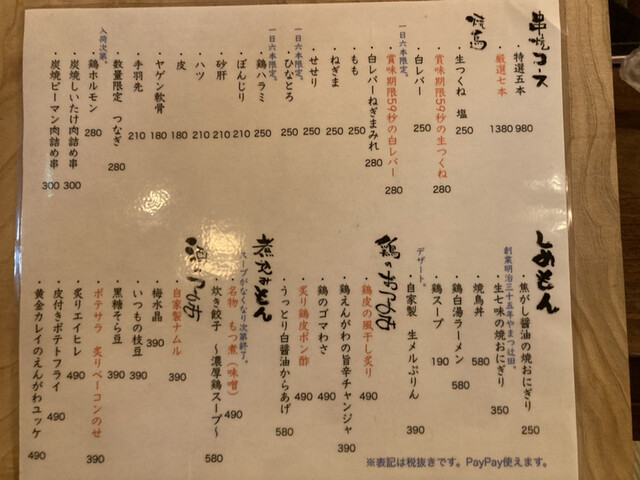 串焼コース
・特選五本 980
・厳選七本 1380
焼鳥
・生つくね 塩 250
・賞味期限59秒の生つくね 280
・白レバー 250
一日六本限定。
・賞味期限59秒の白レバー 280
・白レバーねぎまみれ 280
・もも 250
・ねぎま 250
・せせり 250
・ひなとろ 250
一日六本限定。
・鶏ハラミ 250
一日六本限定。
・ぼんじり 210
・砂肝 210
・ハツ 210
・皮 180
・ヤゲン軟骨 180
・手羽先 210
・数量限定 つなぎ 280
・鶏ホルモン 280
入荷次第。
・炭焼しいたけ肉詰め串 300
・炭焼ピーマン肉詰め串 300
しめもん
・焦がし醤油の焼おにぎり 250
創業明治三十五年やまつ辻田。
・生七味の焼おにぎり 350
・焼鳥丼 580
・鶏白湯ラーメン 580
・鶏スープ 190
デザート。
・自家製 生メルぷりん 390
鶏のおつまみ
・鶏皮の風干し炙り 490
・鶏えんがわの旨辛チャンジャ 390
・鶏のゴマわさ 490
・炙り鶏皮ポン酢 490
・うっとり白醤油からあげ 580
煮込みもん
・名物 もつ煮(味噌) 490
スープがなくなり次第終了。
・炊き餃子 ～濃厚鶏スープ～ 580
・自家製ナムル 390
・梅水晶 390
・いつもの枝豆 390
・黒糖そら豆 390
・ポテサラ 炙りベーコンのせ 390
・炙りエイヒレ 490
・皮付きポテトフライ 490
・黄金カレイのえんがわユッケ 490
※表記は税抜きです。PayPay使えます。